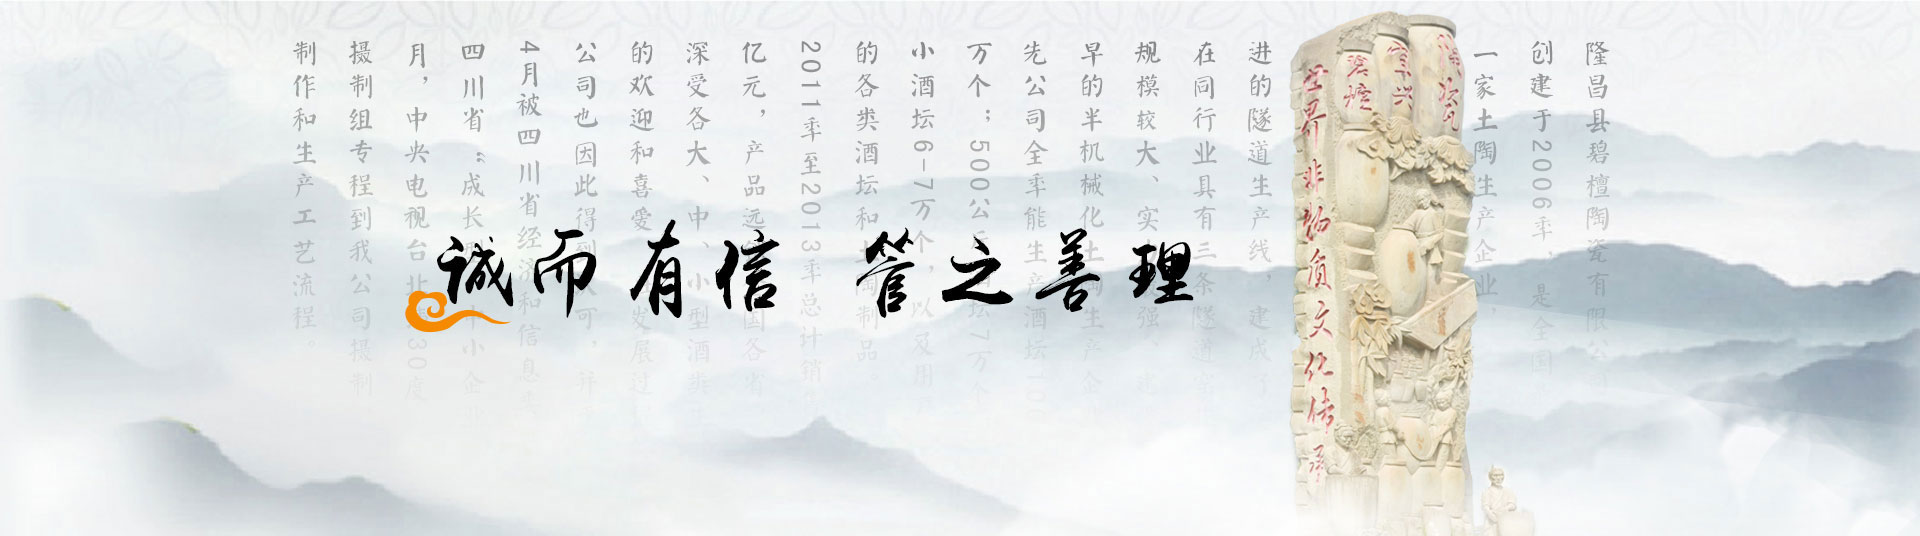 诚而有信 管之善理
隆昌县碧檀陶瓷有限公司
创建于2006年,是全国
一家土陶生产企业,
进的隧道生产线,建成了
在同行业具有三条隧道窑
规模较大、实 强、建
早的半机械化土陶生产企
先公司全年能生产酒坛100
万个;500公斤 坛7万个
小酒坛6-7万个,以及用户
的各类酒坛和土陶制品。
2011年至2013年总计销售
亿元,产品远 国各省
深受各大、中、小型酒类生
的欢迎和喜爱 发展过
公司也因此得到 可,并
4月被四川省经济和信息委
四川省“成长 中小企业
月,中央电视台北 30度
摄制组专程到我公司摄制
制作和生产工艺流程。
世界非物质文化传承